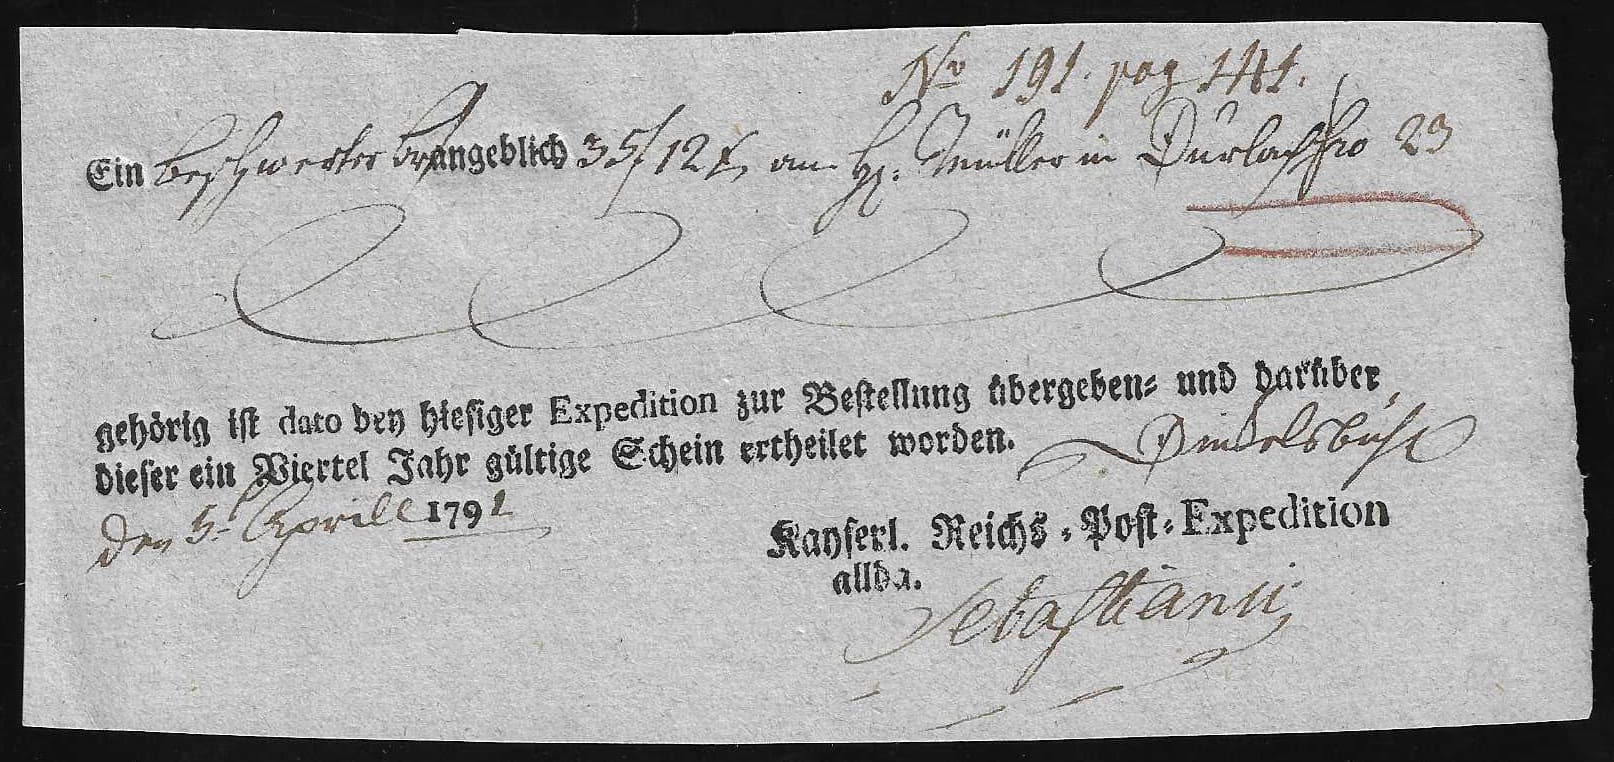 No 191. pag 141.
Ein beschwerter Br angeblich 35f 12 x, an H: Müller in Durlach fro 23
gehörig ist dato bey hiesiger Expedition zur Bestellung übergeben- und darüber
dieser ein Viertel Jahr gültige Schein ertheilet worden. Dinkelsbühl
den 5t Aprill 1791
Kayserl. Reichs-Post-Expedition
allda.
Sebastiani